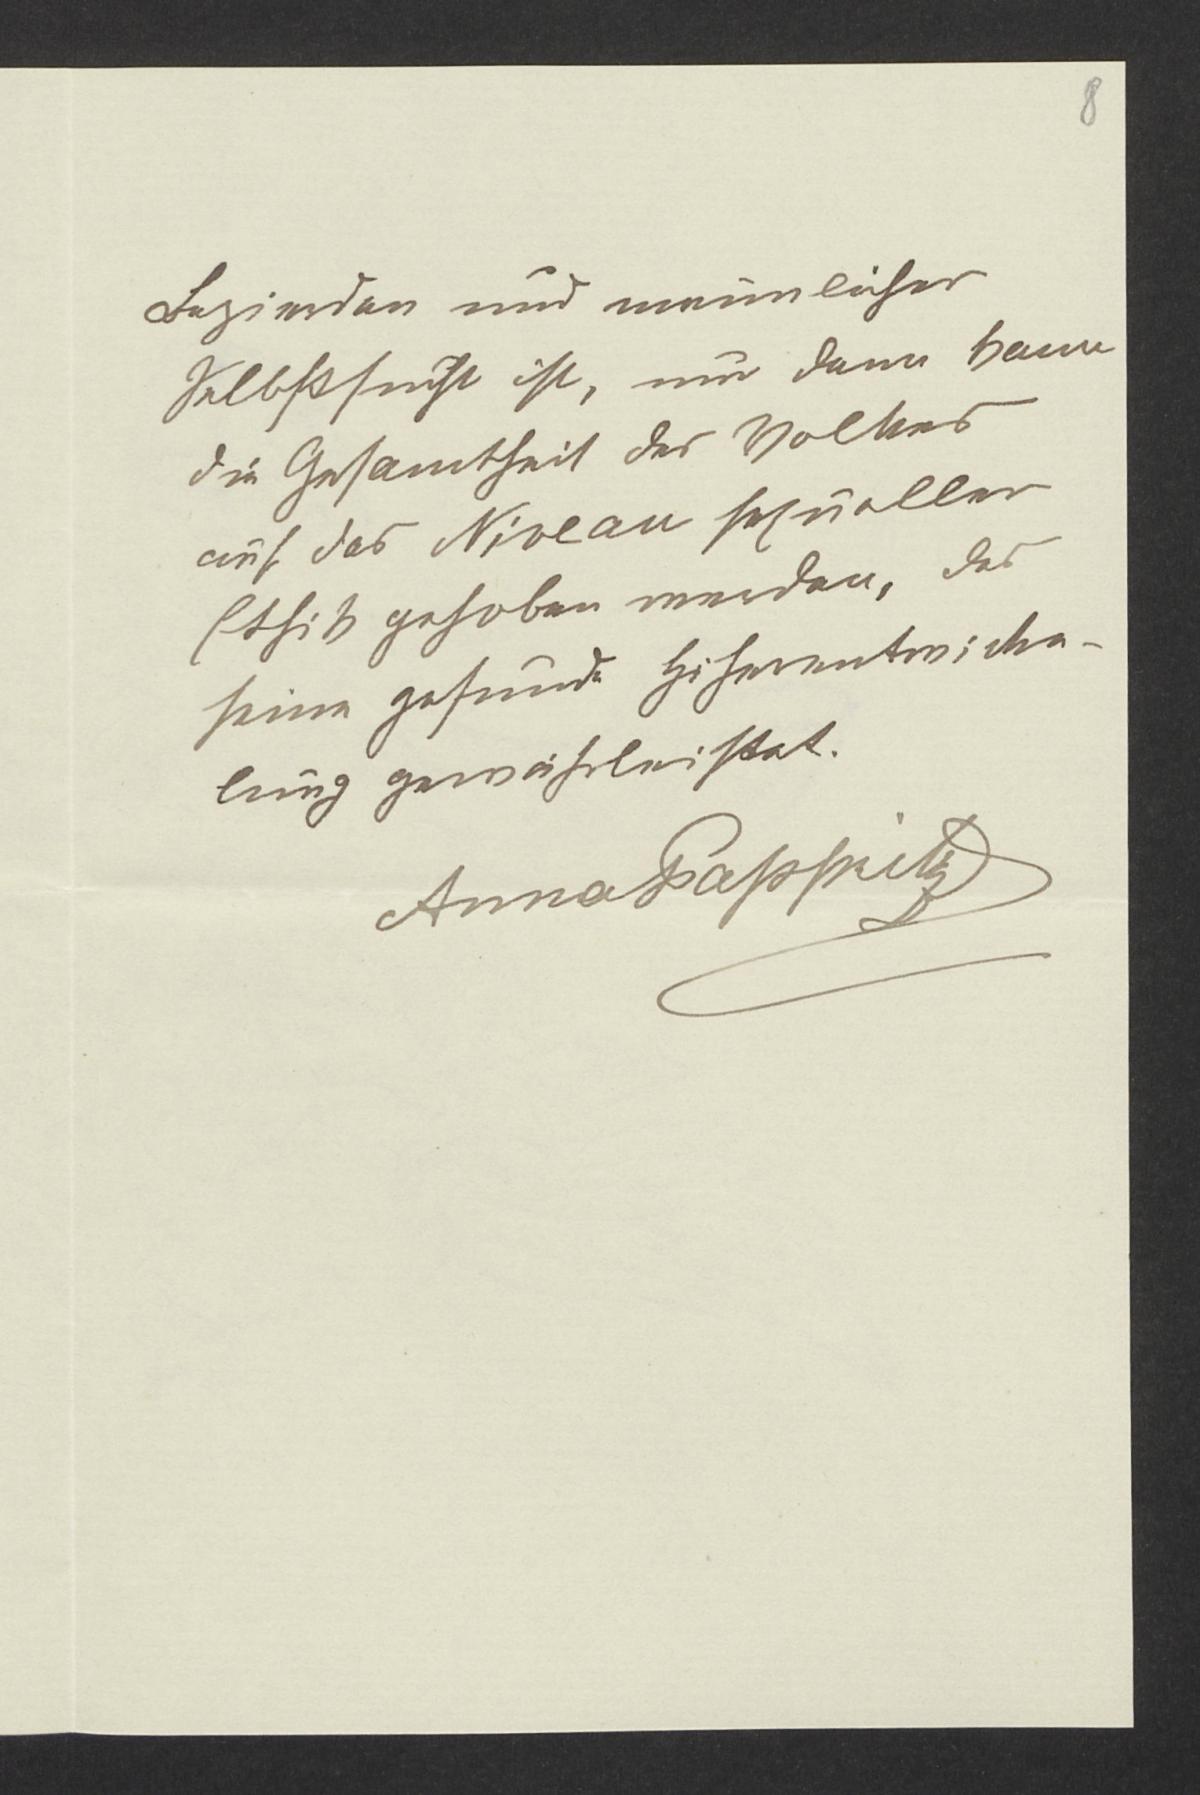 8
Begierden und männlicher
Selbstsucht ist, nur dann kann
die Gesamtheit des Volkes
auf das Niveau sexueller
Ethik gehoben werden, das
seine gesunde Höherentwicke-
lung gewährleistet.
Anna Pappritz